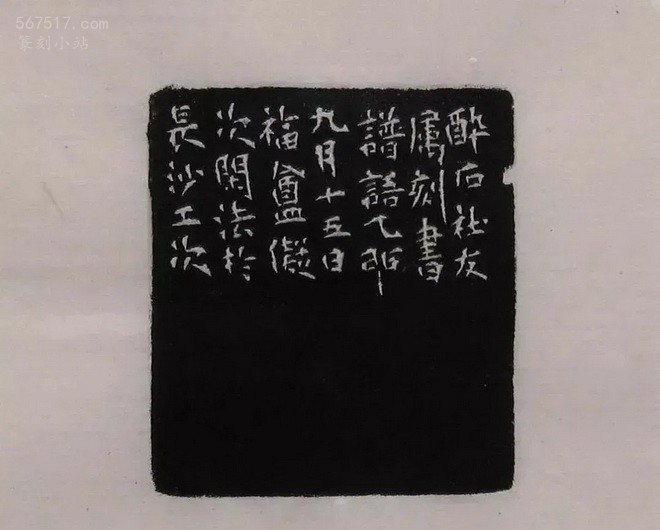 567517.com
篆刻小站
酔石社友
属刻書
譜語乙卯
九月十五日
福盦儗
次閑法於
長沙工次